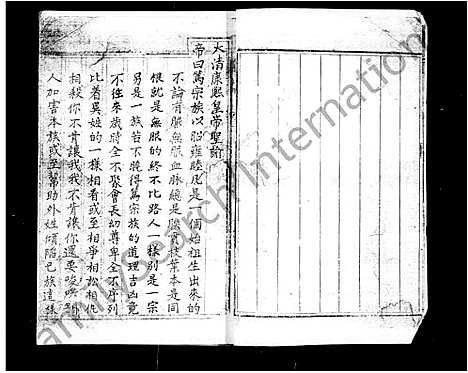 大清康熙皇帝聖諭
帝曰篤宗族以昭雍睦凡是一個始祖生出來的
不論有服無服血脉總是骨肉枝葉本是同
根就是無服的終不比路人一樣別是一宗
另是一族若不曉得篤宗族的道理吉凶竟
不往來歲時全不聚會長幼尊卑全不序列
比着異姓的一樣相看或至相爭相訟相作
相殺你不肯讓我我不肯讓你還要
人加害本族或至幫助外姓傾陷己族這樣
FamilySearch International